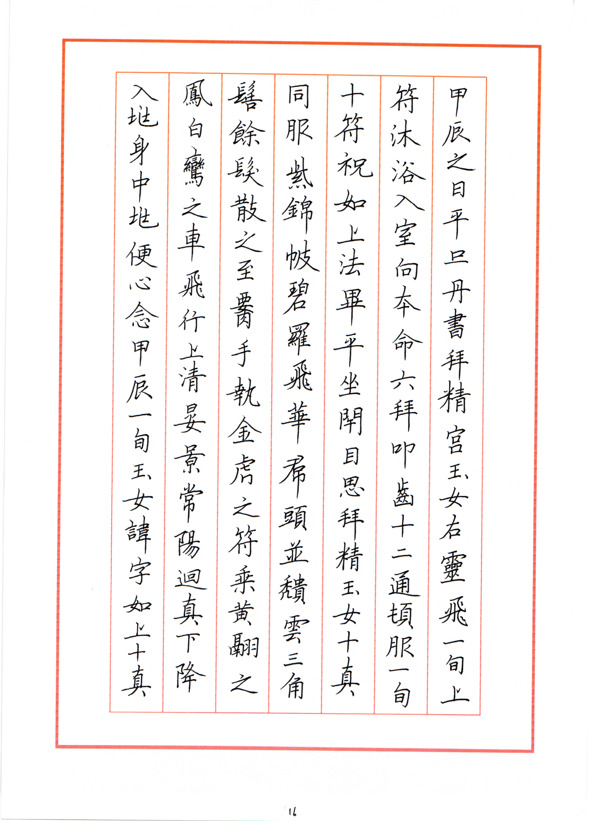 甲辰之日平旦丹書拜精宮玉女右靈飛一旬上
符沐浴入室向本命六拜叩齒十二通頓服一旬
十符祝如上法畢平坐閇目思拜精玉女十真
同服紫錦帔碧羅飛華帬頭並穨雲三角
髻餘髮散之至𦝫手執金虎之符乘黃翮之
鳳白鸞之車飛行上清晏景常陽迴真下降
入𡉈身中𡉈便心念甲辰一旬玉女諱字如上十真
16